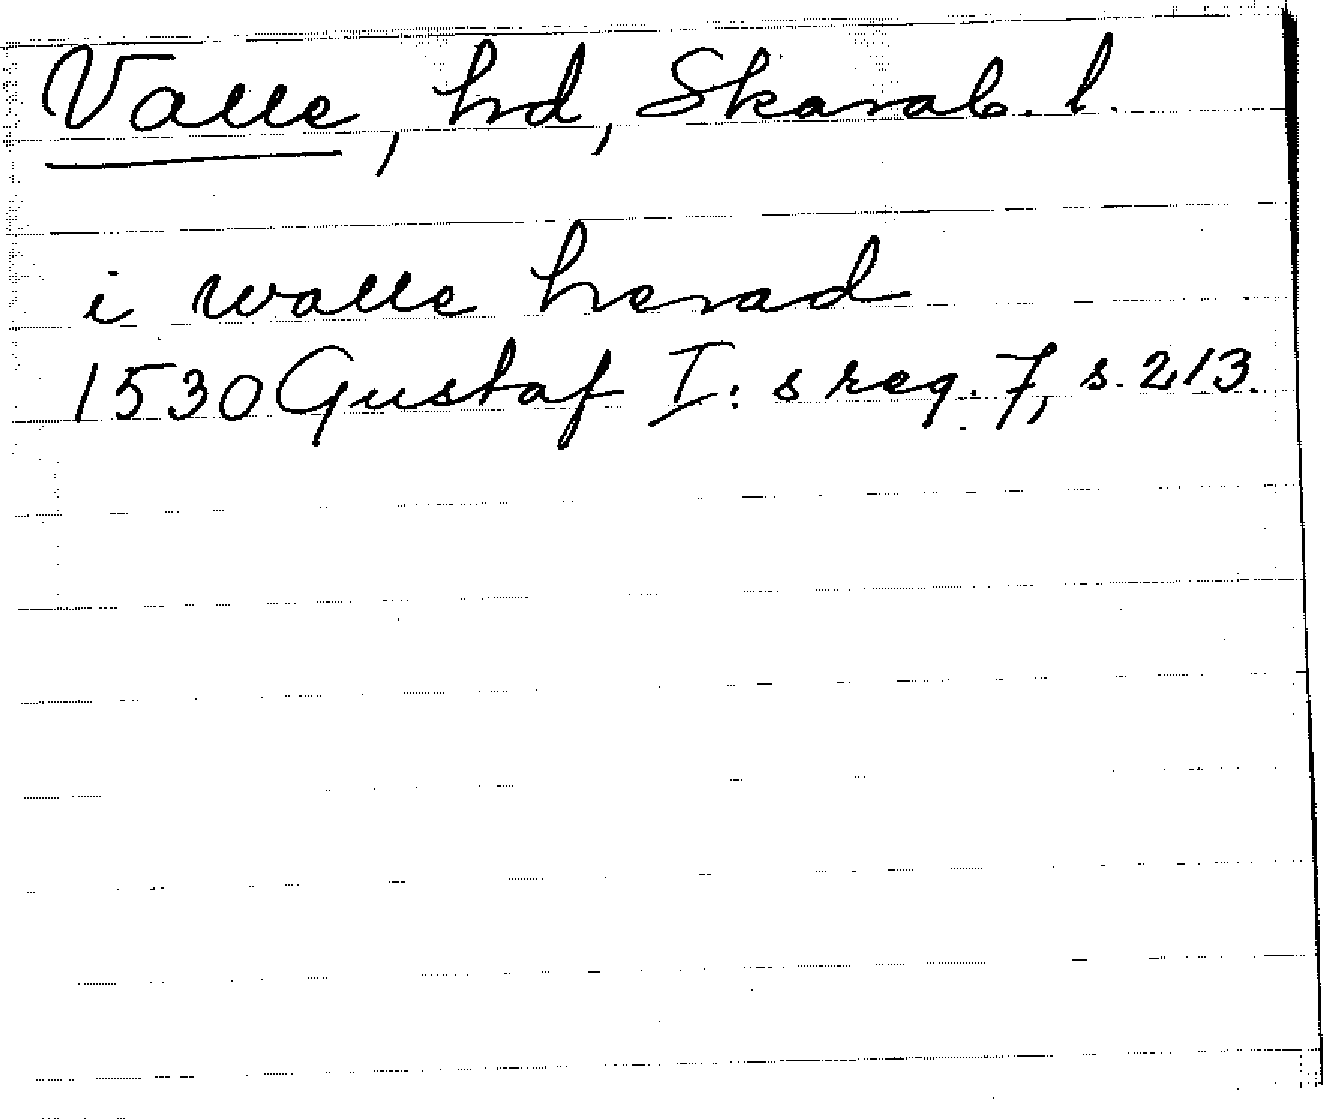 Valle, hd, Skarab. l.
i walle herad
1530 Gustaf I:s reg. 7, s. 213.